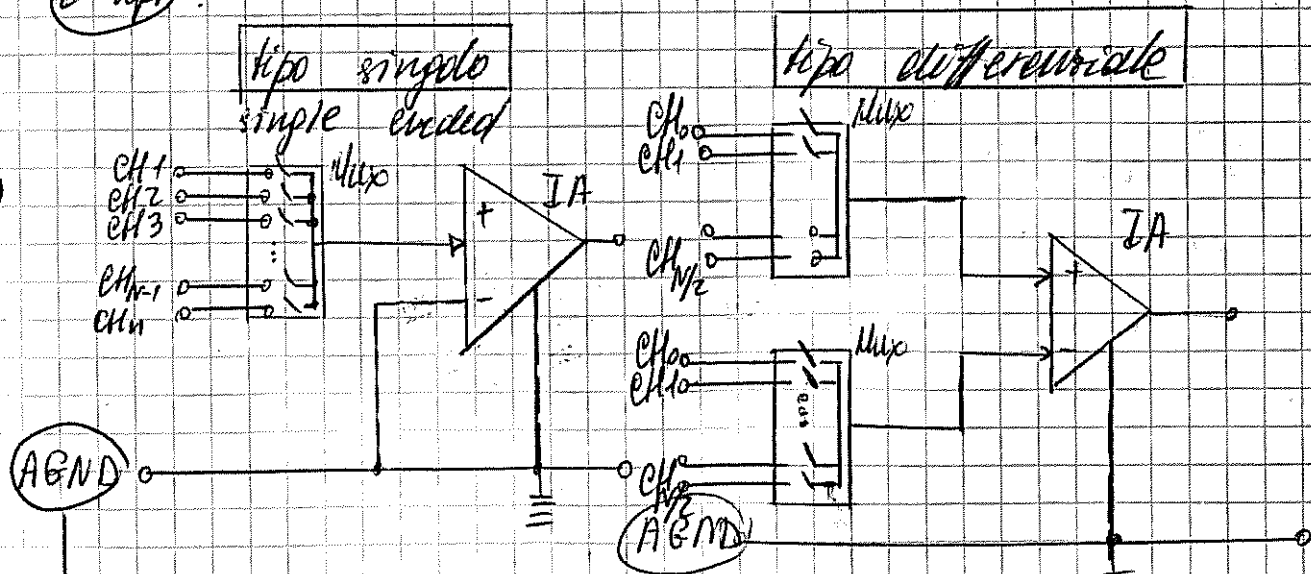 tipo singolo
single ended
CH1
CH2
CH3
CHN-1
CHn
Mux
+
-
IA
AGND
tipo differenziale
CH0
CH1
CHN/2
Mux
CH0
CH1
CHN/2
Mux
+
-
IA
AGND